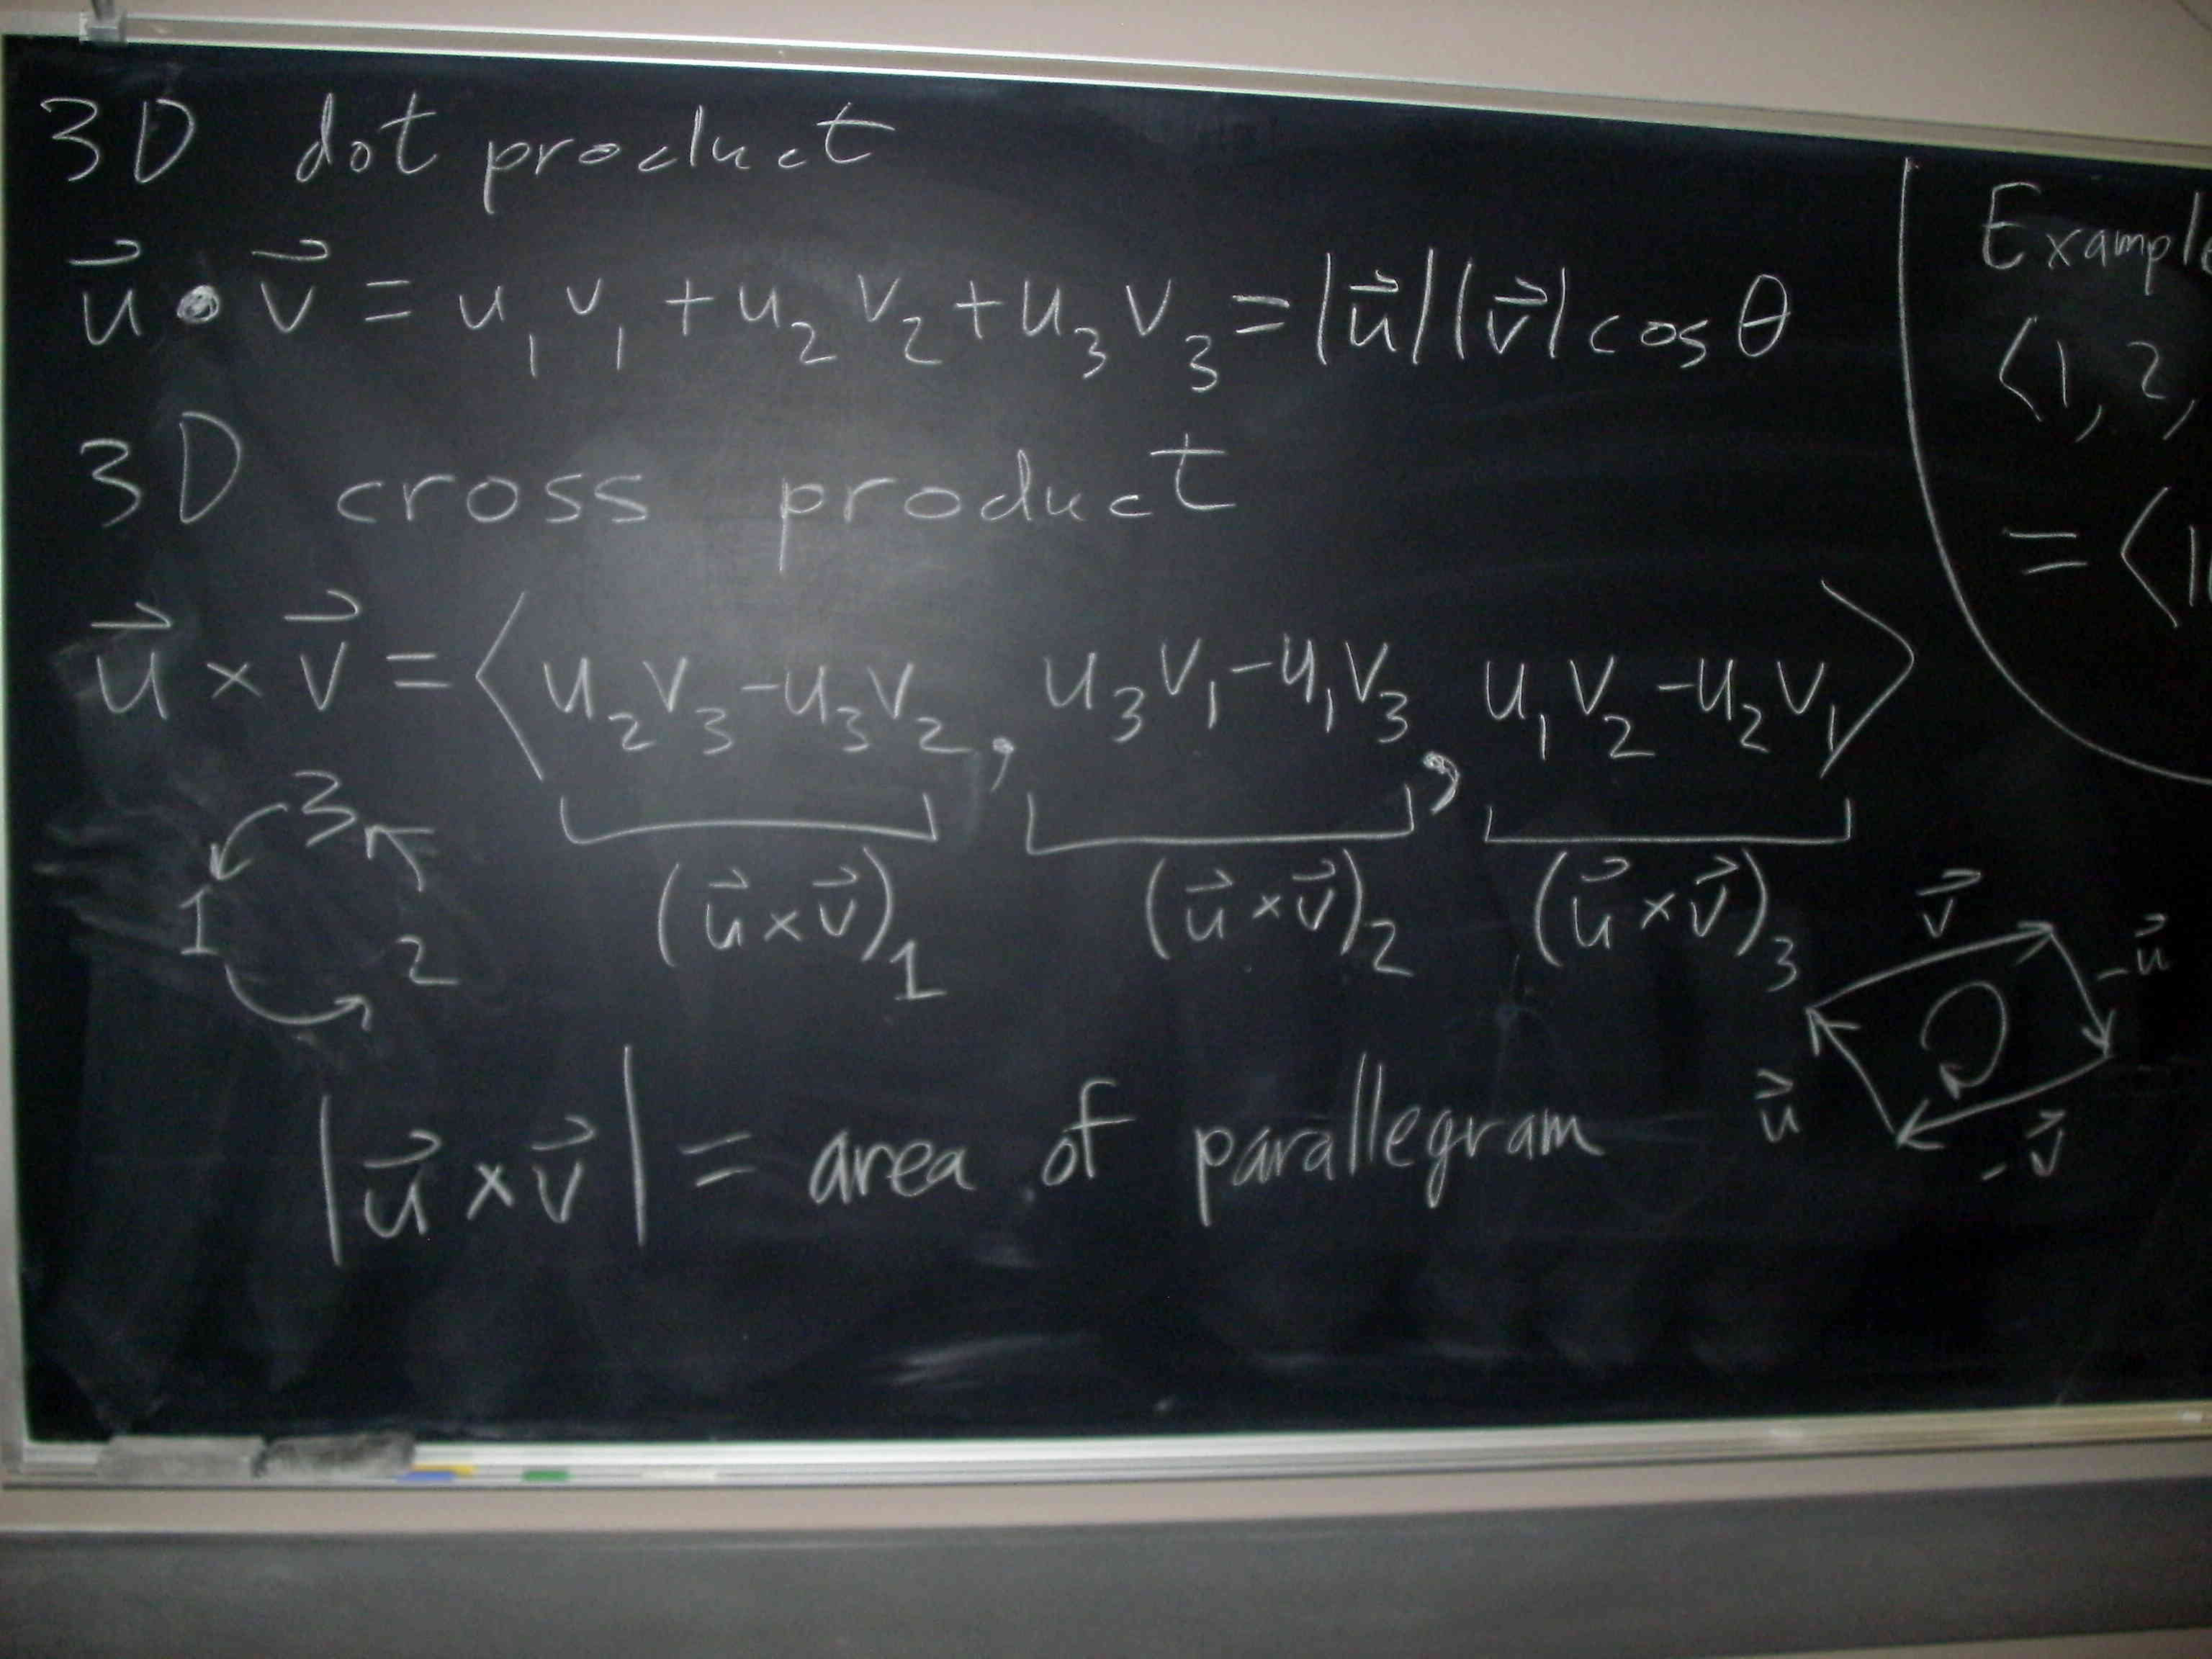 3D dot product
u⃗ • v⃗ = u₁v₁ + u₂v₂ + u₃v₃ = |u⃗||v⃗| cos θ
3D cross product
u⃗ × v⃗ = ⟨u₂v₃ - u₃v₂, u₃v₁ - u₁v₃, u₁v₂ - u₂v₁⟩
(u⃗ × v⃗)₁ (u⃗ × v⃗)₂ (u⃗ × v⃗)₃
3
1 2
|u⃗ × v⃗| = area of parallegram
v⃗
-u⃗
u⃗
-v⃗
Example
⟨1, 2,
= ⟨1